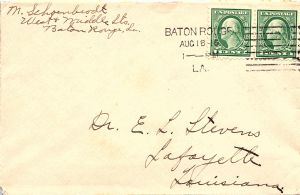 M. Schoenbrodt
West & Middle Sts.
Baton Rouge, La.
BATON ROUGE
AUG 18
LA.
U.S. POSTAGE
U.S. POSTAGE
Dr. E. L. Stevens
Lafayette
Louisiana